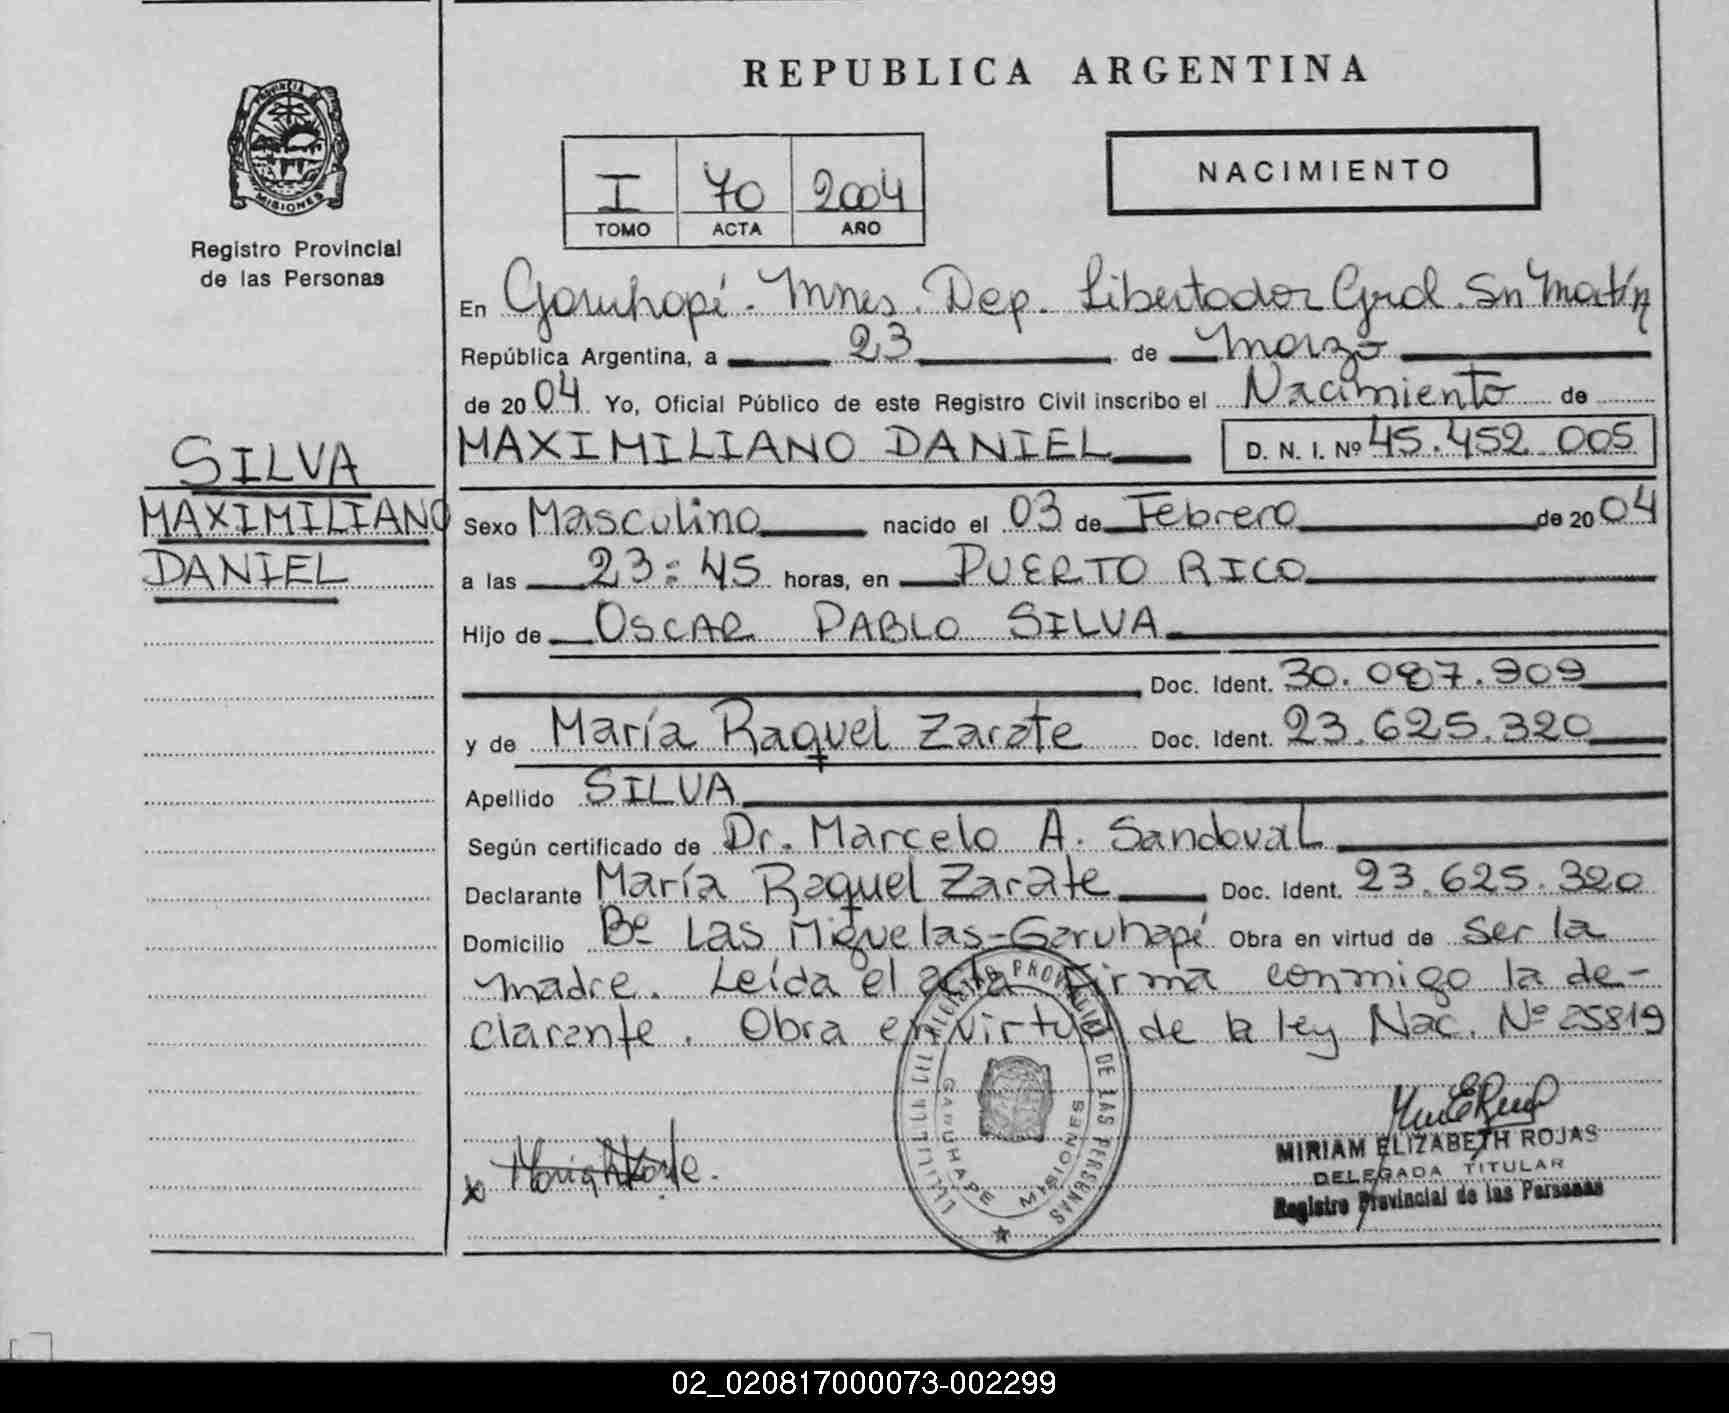 REPUBLICA ARGENTINA
PROVINCIA DE
MISIONES
Registro Provincial
de las Personas
NACIMIENTO
I 70 2004
TOMO ACTA AÑO
En Garuhapé - Mnes. Dep. Libertador Gral. Sn Martín
República Argentina, a 23 de Marzo
de 2004 Yo, Oficial Público de este Registro Civil inscribo el Nacimiento de
SILVA
MAXIMILIANO
DANIEL
MAXIMILIANO DANIEL D. N. I. Nº 45.452.005
Sexo Masculino nacido el 03 de Febrero de 2004
a las 23:45 horas, en PUERTO RICO
Hijo de OSCAR PABLO SILVA
Doc. Ident. 30.087.909
y de María Raquel Zarate Doc. Ident. 23.625.320
Apellido SILVA
Según certificado de Dr. Marcelo A. Sandoval
Declarante María Raquel Zarate Doc. Ident. 23.625.320
Domicilio Bº Las Miguelas - Garuhapé Obra en virtud de ser la
madre. Leída el acta firma conmigo la de-
clarante. Obra en virtud de la ley Nac. Nº 25819
REGISTRO PROVINCIAL DE LAS PERSONAS
GARUHAPE MISIONES
MIRIAM ELIZABETH ROJAS
DELEGADA TITULAR
Registro Provincial de las Personas
02_020817000073-002299